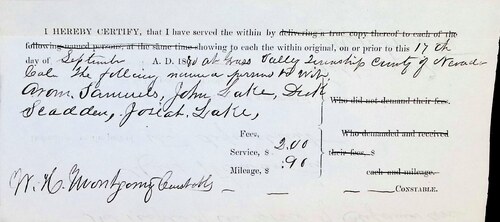 I HEREBY CERTIFY, that I have served the within by delivering a true copy thereof to each of the
following named persons, at the same time showing to each the within original, on or prior to this 17th
day of September A. D. 1870 at Grass Vally Township County of Nevada
Cala The following named persons to wit,
Samuels, John Lake, Dick
Scadden, Josiah Lake,
Who did not demand their fees.
Fees,
Who demanded and received
Service, $ 2.00
their fees. $
Mileage, $ .90
each and mileage.
W. H. Montgomery Constable
CONSTABLE.